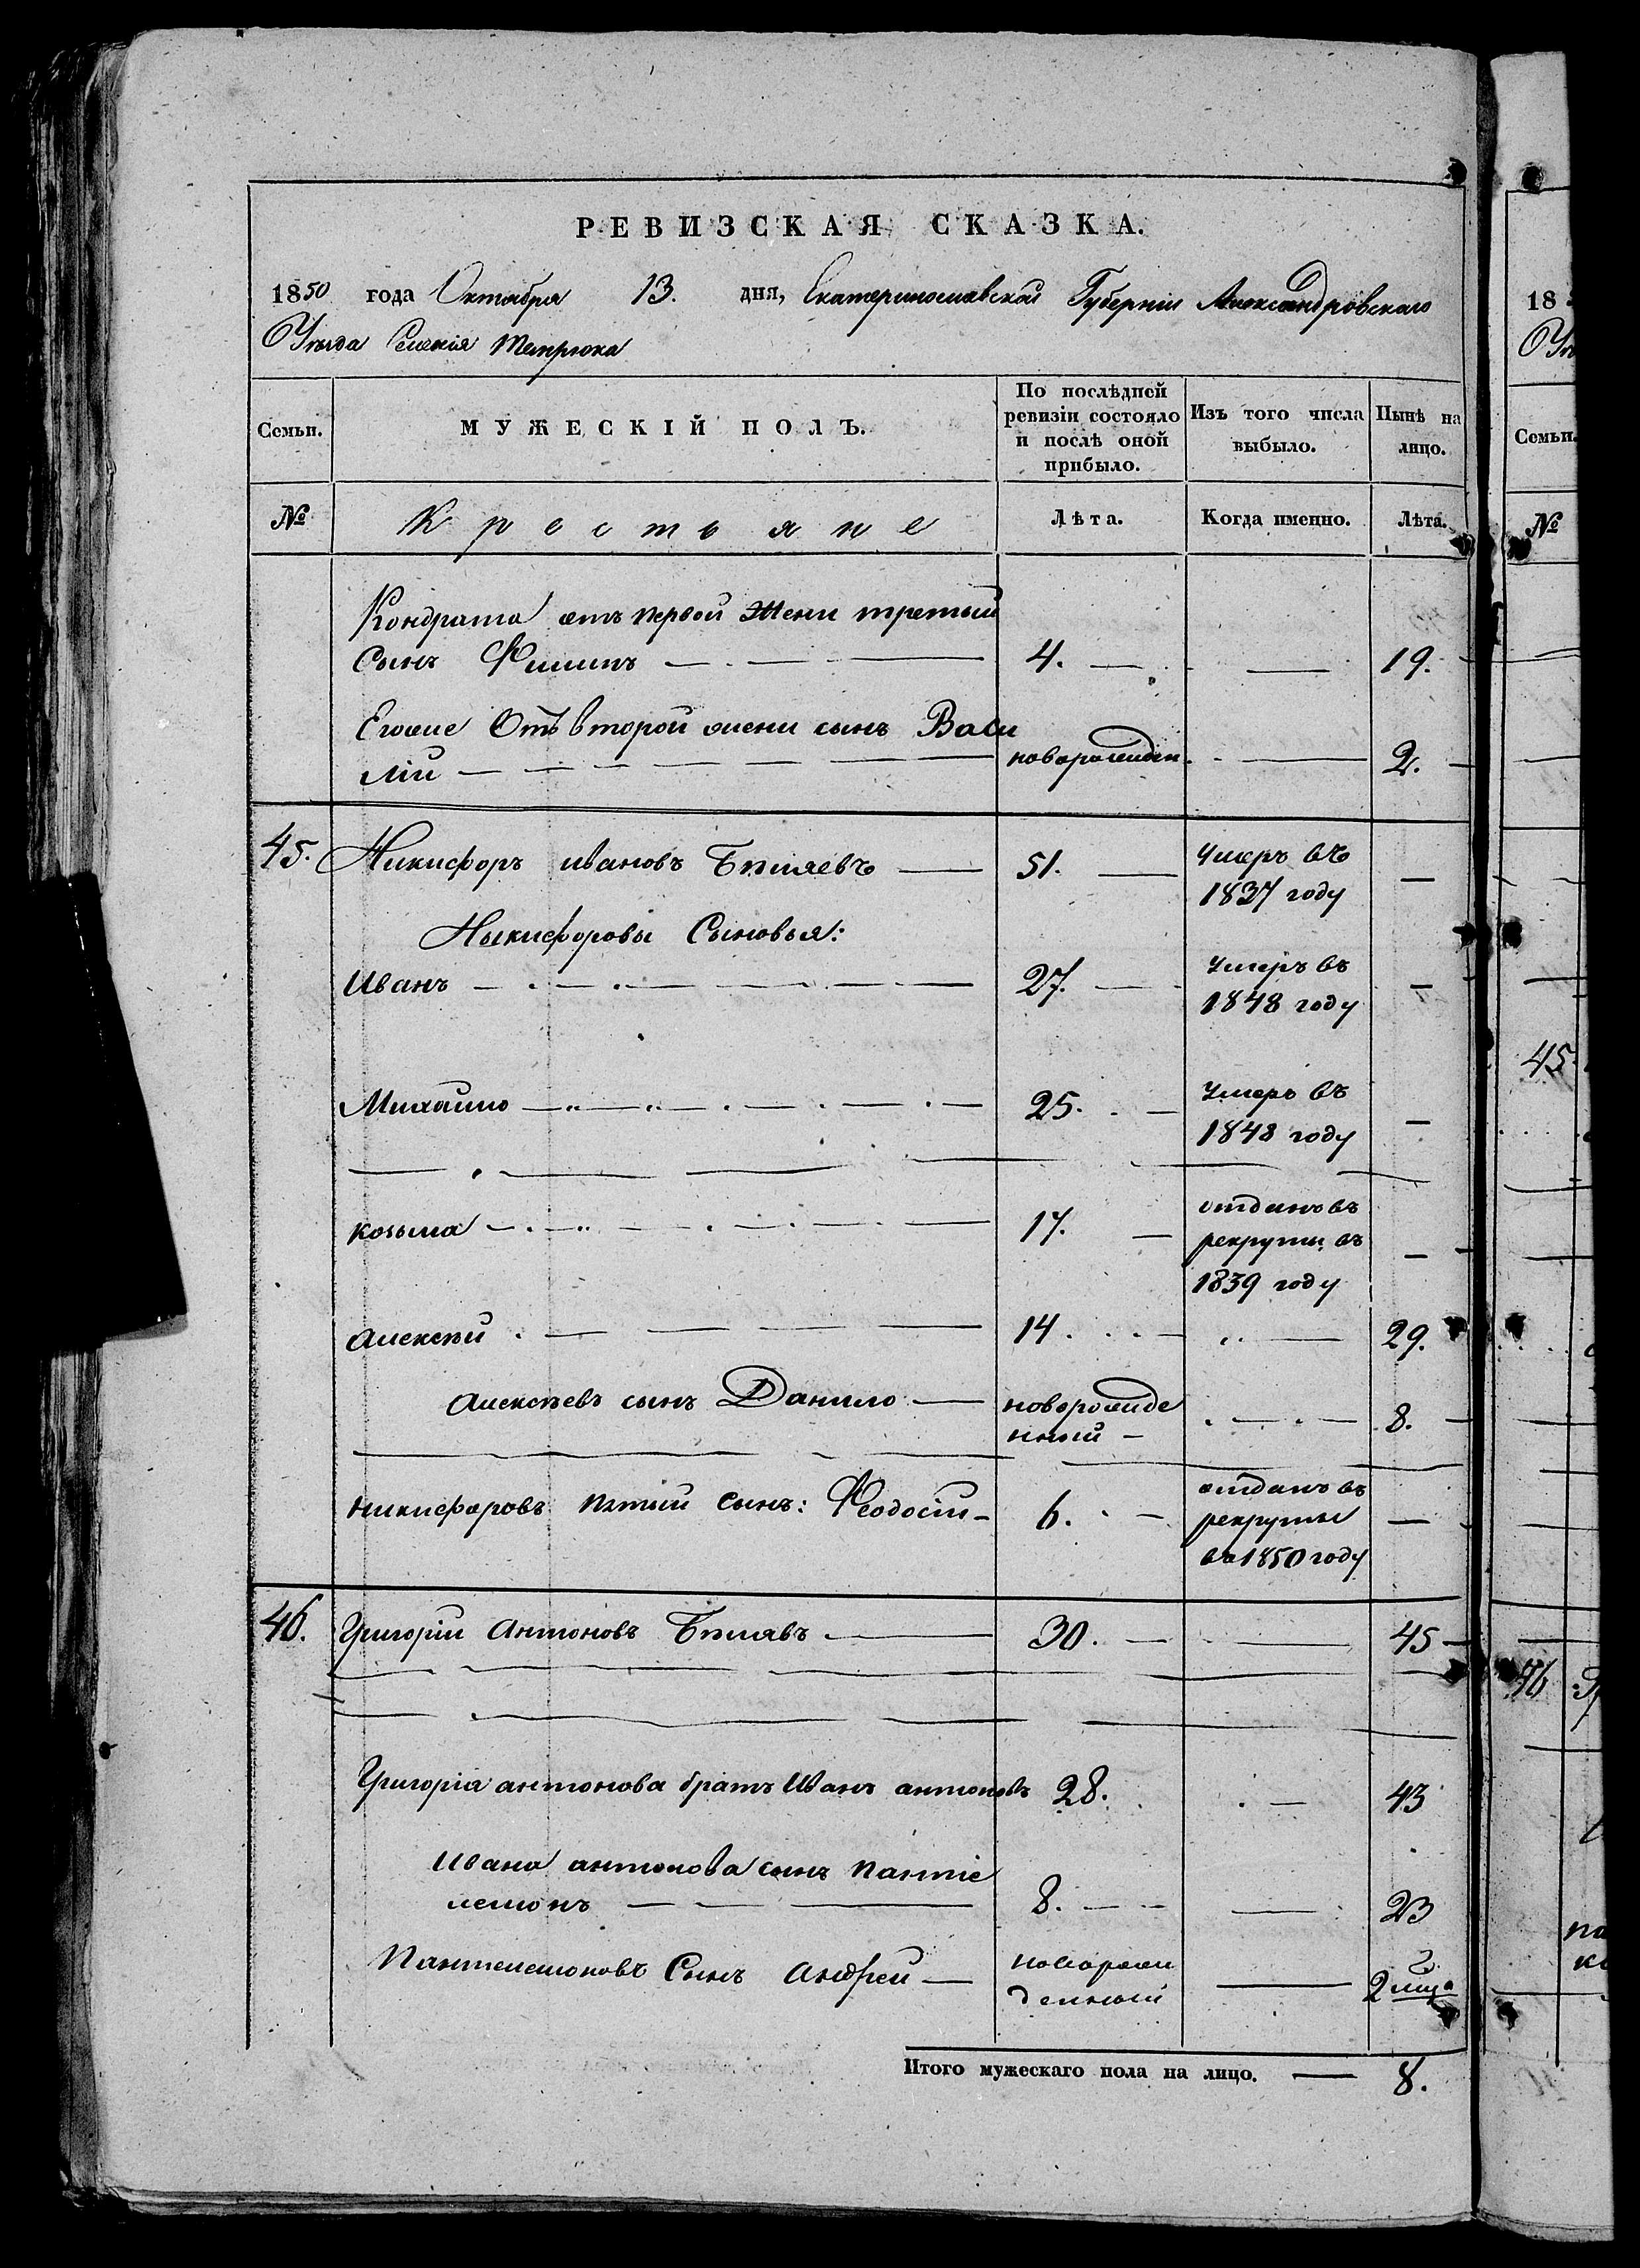 РЕВИЗСКАЯ СКАЗКА.
1850 года Октября 13. дня, Екатеринославской Губерніи Александровскаго
Уѣзда Селенія Темрюка
Семьи.
МУЖЕСКІЙ ПОЛЪ.
По послѣдней ревизіи состояло и послѣ оной прибыло.
Изъ того числа выбыло.
Нынѣ на лицо.
№
Крестьяне
Лѣта.
Когда именно.
Лѣта.
Кондрата отъ первой жени третьій
Сынъ Филипъ 4. 19.
Егоже Отъ второй жени сынъ Васи
лій новорожден. 2.
45. Никифоръ ивановъ Бѣляевъ 51. Умеръ въ 1837 году
Никифоровы Сыновья:
Иванъ 27. умеръ въ 1848 году
Михайло 25. умеръ въ 1848 году
козьма 17. отданъ въ рекруты въ 1839 году
алексѣй 14. 29.
алексѣевъ сынъ Данило новорожде нный 8.
никифоровъ пятый сынъ: Феодосій 6. отданъ въ рекруты въ 1850 году
46. Григорій антоновъ Бѣляевъ 30. 45
Григорія антонова братъ Иванъ антоновъ 28. 43
Ивана антонова сынъ панте
лемонъ 8. 23
Пантелемоновъ Сынъ андрей новорож денный 2
2 лица
Итого мужескаго пола на лицо. 8.
18
Семьи.
№
45
46